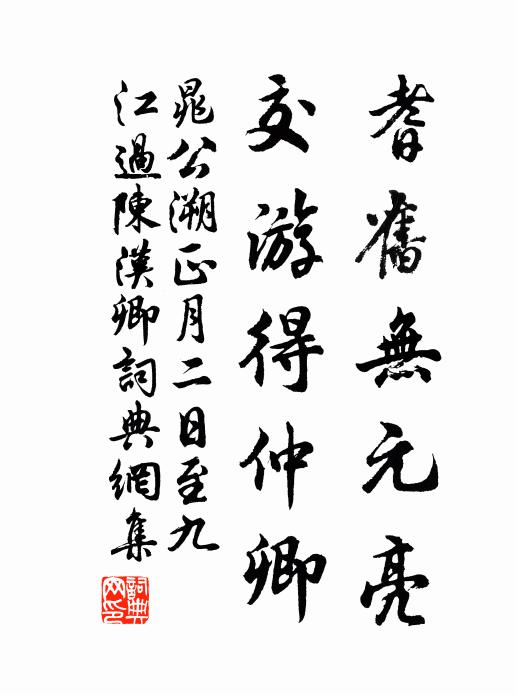 耆舊無元亮
交游得仲卿
晁公溯正月二日至九
江過陳漢卿詞典網集
詞典
网印